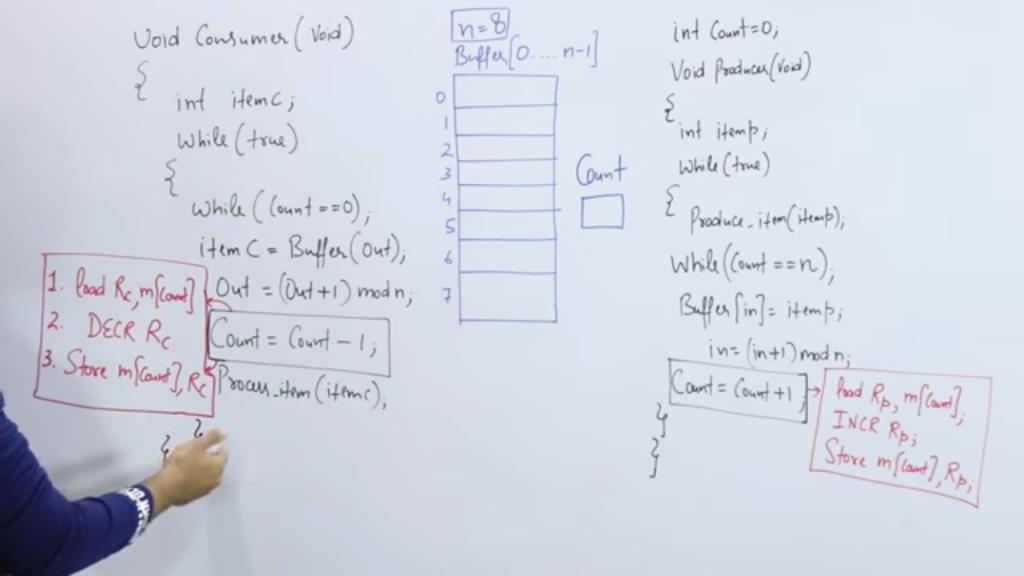 Void Consumer(Void)
{
int itemC;
While(true)
{
While(Count==0);
itemC = Buffer(Out);
Out = (Out+1) mod n;
Count = Count - 1;
Process_item(itemC);
}
}
1. load Rc, m[Count]
2. DECR Rc
3. Store m[Count], Rc
n=8
Buffer[0....n-1]
0
1
2
3
4
5
6
7
Count
int Count=0;
Void Producer(Void)
{
int itemp;
While(true)
{
Produce_item(itemp);
While(Count==n);
Buffer[in]= itemp;
in=(in+1)mod n;
Count = Count+1;
}
}
load Rp, m[Count];
INCR Rp;
Store m[Count], Rp;